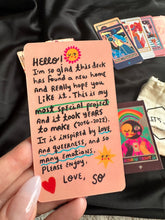 Hello!
Im so glad this deck
has found a new home
and REALLY hope you
like it. This is my
most special project
and it took years
to make (2016-2022).
It is inspired by love,
and queerness, and so
many emotions.
Please enjoy.
LOVE, SO